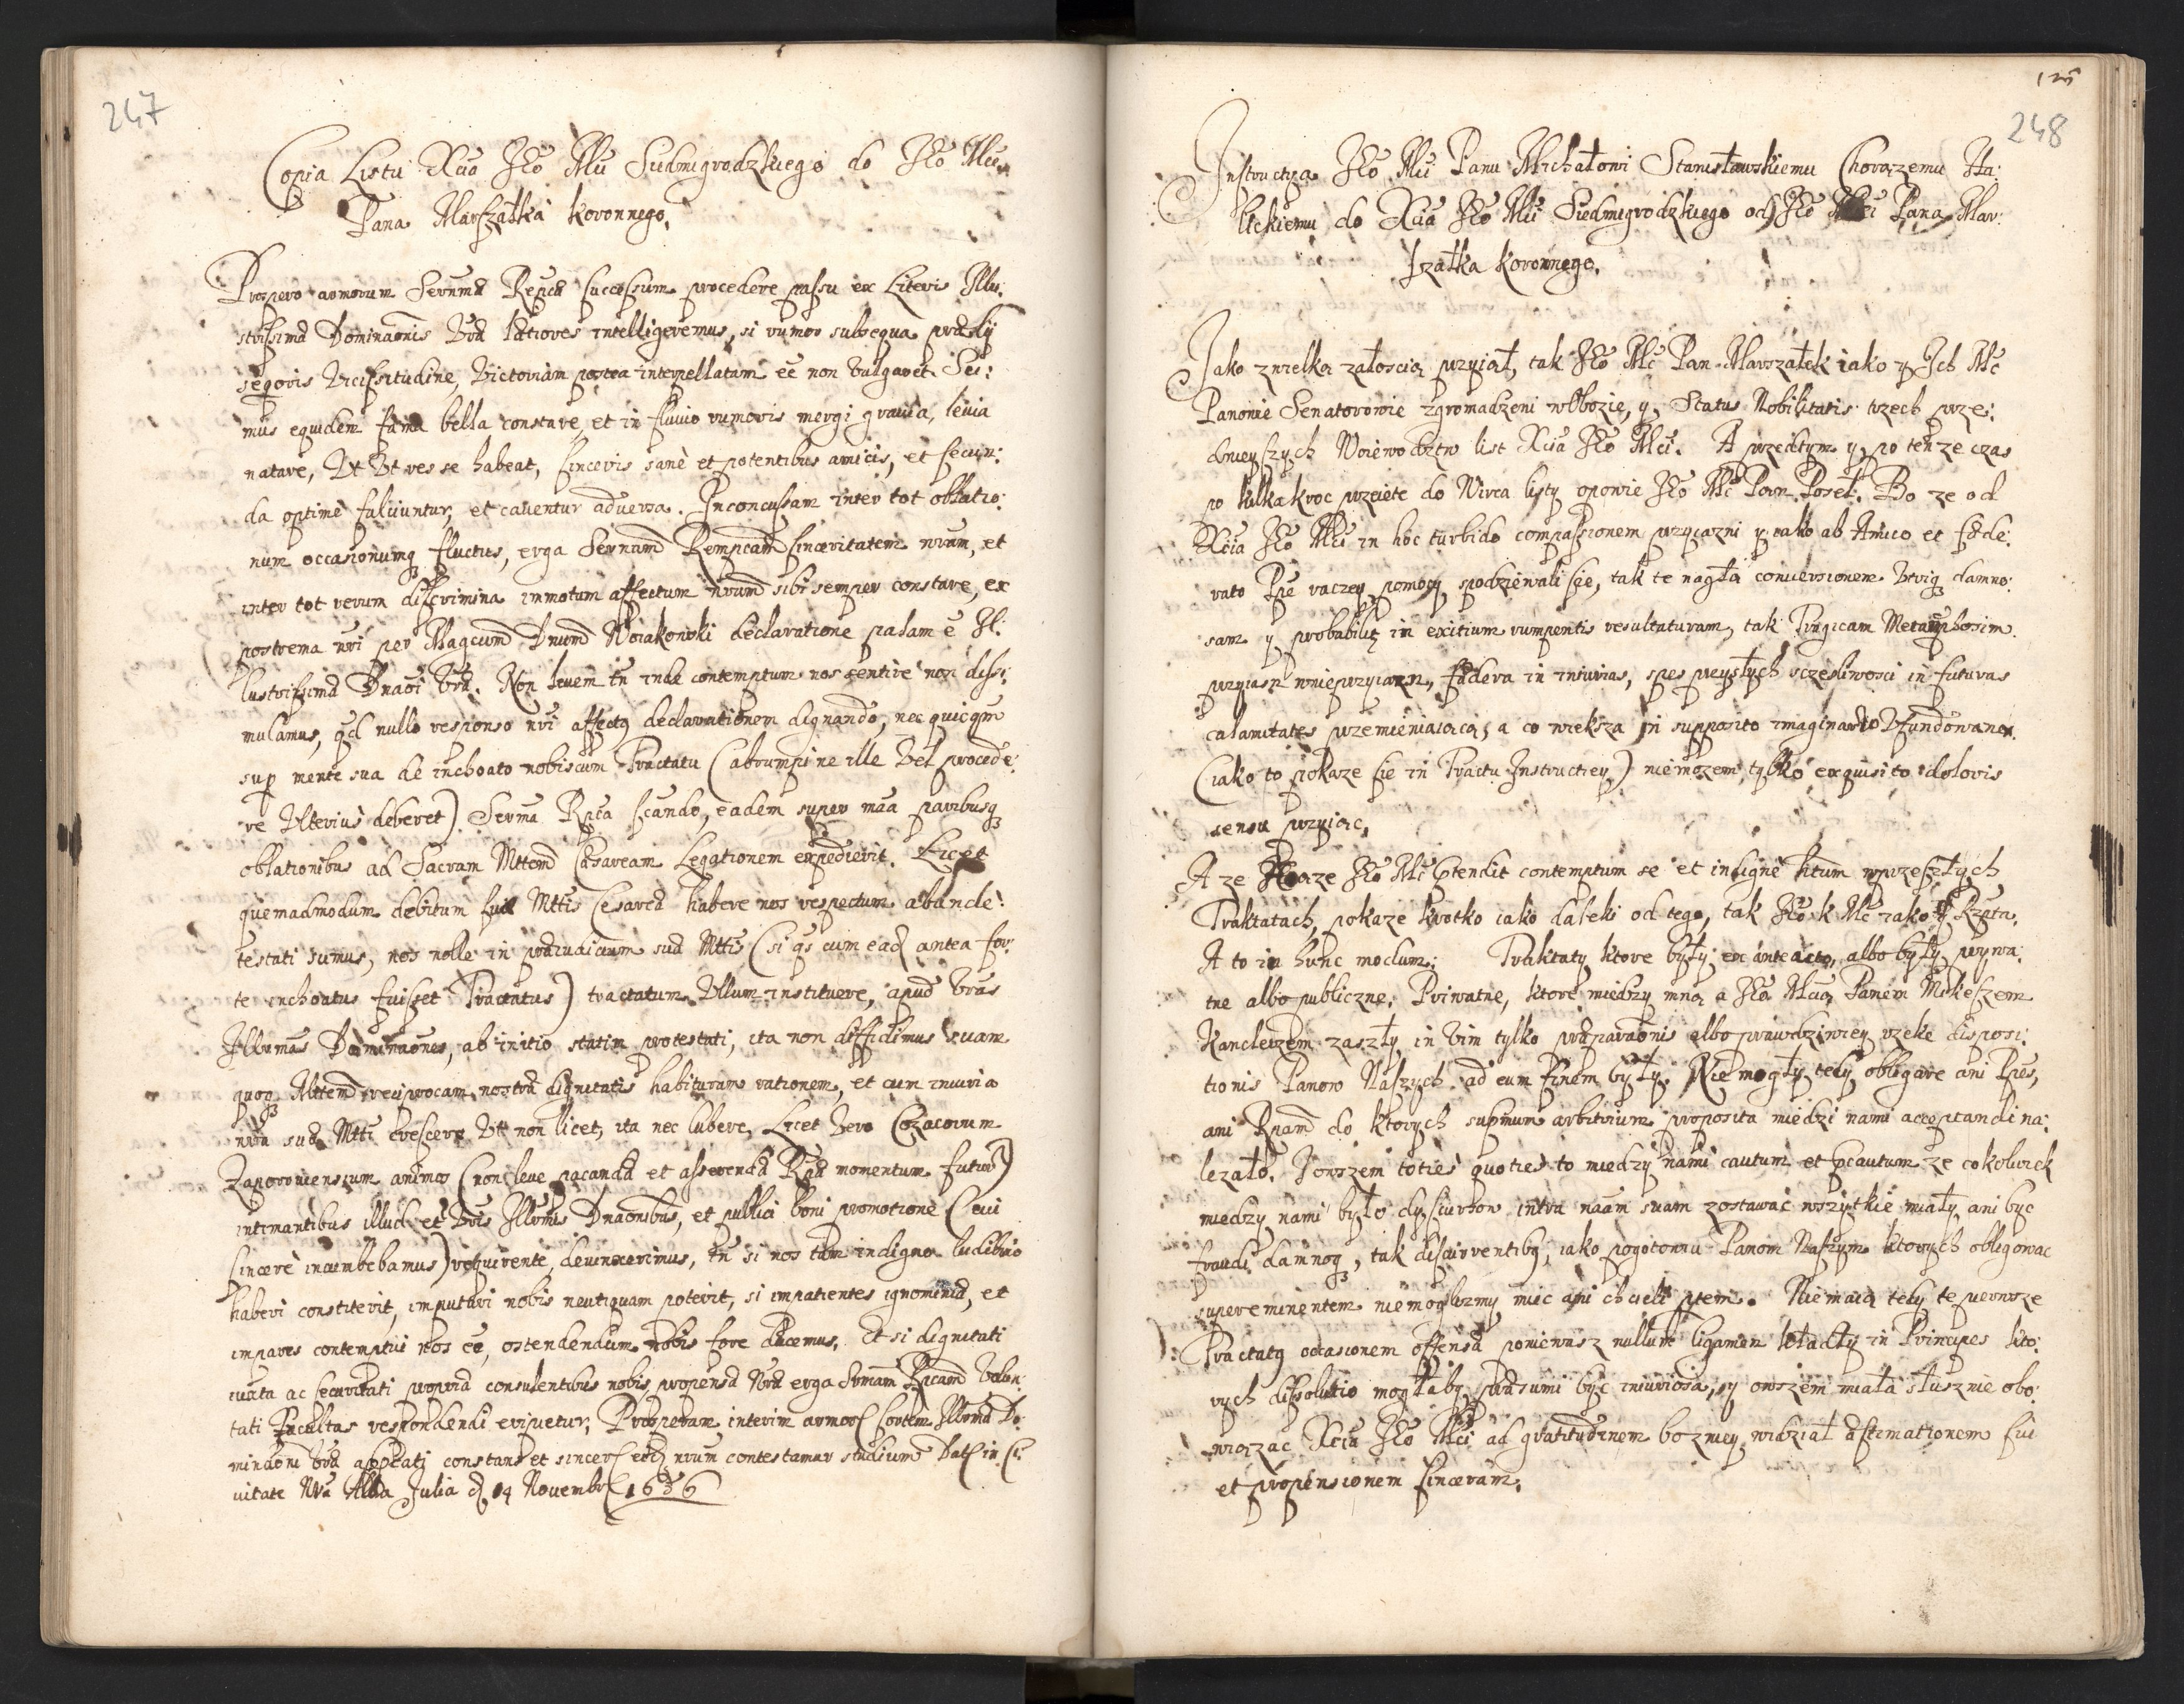 247
Copia Listu Xcia Jeo Mci Siedmigrodzkiego do Jeo Mci
Pana Marszałka Koronnego.
Prospero armorum Serenmæ Reipcæ successum procedere passu ex Literis Illu:
strissimæ Dominaonis Vræ lætiores intelligeremus, si rumor subsequa prælij
seqioris Vicissitudine, Victoriam postea interpellatam eē non vulgaret. Sci:
mus equidem fama bella constare, et in fluuio rumoris mergi grauia, leuia
natare, Vt Vt res se habeat, sinceris sanè et potentibus amicis, et secun:
da optimè fulciuntur, et cauentur aduersa. Inconcussam inter tot oblatio:
num occasionumq fluctus, erga Sernam Rempcam sinceritatem nram, et
inter tot rerum discrimina immotum affectum nrum sibi semper constare, ex
postrema nri per Magcum Dnum Woiakowski declaratione palam ē Il:
lustrissimæ Dnaoi Vræ. Non leuem tn inde contemptum nos sentire non dissi:
mulamus, qd nullo responso nri affectq declarationem dignando, nec quicqm
sup mente sua de inchoato nobiscum Tractatu (abrumpi ne ille Vel procede:
re Vlterius deberet) Serma Rpca scando, eadem super maa paribusq
oblationibus ad Sacram Mttem Cæsaream Legationem expedierit. Licet
quemadmodum debitum suæ Mttis Cesareæ habere nos respectum abundè
testati sumus, nos nolle in præiudicium suæ Mttis (si qs cum ead antea for:
te inchoatus fuisset Tractatus) tractatum Vllum instituere, apud Vras
Illrmas Dominaones, ab initio statim protestati, ita non diffidimus suam
quoq Mttem reciprocam nostræ dignitatis habituram rationem, et cum iniuria
nra suæ Mtti crescere Vt non licet, ita nec lubere, Licet Vero Cozacorum
Zaporouiensium animos (non leue pacandæ et asserendæ Rpcæ momentum futuros)
intimantibus illud et Vris Illrmis Dnaonibus, et publici boni promotione (cui
sincerè incumbebamus) requirente, deuinxerimus, tn si nos tam indigno ludibrio
haberi constiterit, imputari nobis neutiquam poterit, si impatientes ignominiæ, et
impares contemptui nos eē, ostendendum nobis fore ducemus. Et si dignitati
iuxta ac securitati propriæ consulentibus nobis propensæ Nræ erga Srmam Rpcam Volun:
tati Facultas respondendi eripietur, Prosperam interim armor sortem Illrmæ Do:
minaoni Vræ appcati constans et sincer erg nrum contestamur studium Dat in Ci:
uitate Nra Alba Julia d 14 Novembr 1656
248
Instructia Jeo Mci Panu Michałowi Stanisławskiemu Chorązemu Ha:
lickiemu do Xcia Jeo Mci Siedmigrodzkiego od Jeo Mci Pana Mar:
szałka Koronnego.
Jako z wielką załoscią przyiął, tak Jeo Mć Pan Marszałek iako y Ich Mć
Panowie Senatorowie zgromadzeni w Obozie, y Status Nobilitatis trzech prze:
dnieyszych Woiewodztw list Xcia Jeo Mci. A przedtym y po tenze czas
po kilkakroc przeięte do Wirca listy opowie Jeo Mć Pan Poseł. Bo ze od
Xcia Jeo Mci in hoc turbido compassionem przyiazni y iako ab Amico et fæde:
rato Pie raczey pomocy spodziewali się, tak te nagłą conuersionem Vtriq damno:
sam y probabilr in exitium rumpentis resultaturam, tak Tragicam Metamphosim
przyiazn w nieprzyiazn, fædera in iniurias, spes przyszłych szczęsliwosci in futuras
calamitates przemieniaiącą, a co większa in supposito imaginario Vfundowaną
(iako to pokaze się in Tractu Instructiey) niemozem, tylko exquisito doloris
sensu przyiąc.
A ze Xiąze Jeo Mć Ptendit contemptum se et indigne Htum w przeszłych
Traktatach, pokaze krotko iako daleki od tego, tak Jeo K Mć iako y Rzpta.
A to in hunc modum: Traktaty ktore były ex anteacto, albo były prywa:
tne albo publiczne. Priwatne, ktore między mną a Jeo Mcią Panem Mikeszem
Kanclerzem zaszły in Vim tylko præparaonis albo prawdziwiey rzeke disposi:
tionis Panow Naszych ad eum finem były. Nie mogły tedy obligare ani Ppes,
ani Rpam do ktorych supmum arbitrium proposita miedzi nami acceptandi na:
lezało. I owszem toties quoties to miedzy nami cautum et Pcautum ze cokolwiek
miedzy nami było dyscursow intra naam suam zostawać wszytkie miały, ani byc
fraudi damnoq, tak discurrentibq, iako pogotowiu Panom Naszym ktorych obligowac
supereminentem nie moglismy miec ani chcieli ptem. Nie maią tedy te pierwsze
Tractaty occasionem offensæ poniewasz nullum ligamen kładły in Principes kto:
rych dissolutio mogłaby præsumi być iniuriosa, y owszem miała słusznie obo:
wiązac Xcia Jeo Mci ad gratitudinem bo z niey widział æstimationem sui
et propensionem sinceram.